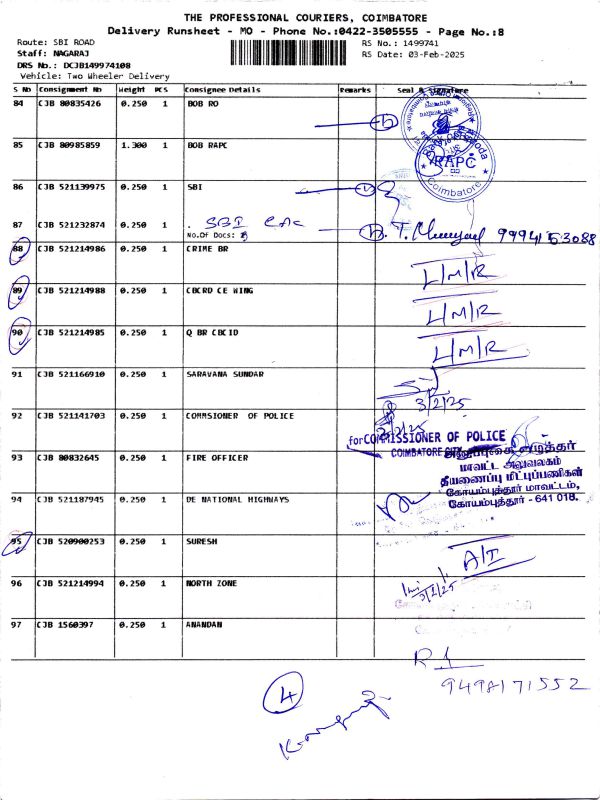 THE PROFESSIONAL COURIERS, COIMBATORE
Delivery Runsheet - MO - Phone No.:0422-3505555 - Page No.:8
Route: SBI ROAD
RS No.: 1499741
Staff: NAGARAJ
RS Date: 03-Feb-2025
DRS No.: DCJB149974108
Vehicle: Two Wheeler Delivery
S No Consignment No Weight PCS Consignee Details Remarks Seal & Signature
84 CJB 80835426 0.250 1 BOB RO
85 CJB 80985859 1.300 1 BOB RAPC
RAPC
Coimbatore
86 CJB 521139975 0.250 1 SBI
87 CJB 521232874 0.250 1 . SBI
No.Of Docs:
88 CJB 521214986 0.250 1 CRIME BR
L/M/R
89 CJB 521214988 0.250 1 CBCRD CE WING
L/M/R
90 CJB 521214985 0.250 1 Q BR CBCID
L/M/R
91 CJB 521166910 0.250 1 SARAVANA SUNDAR
3/2/25
92 CJB 521141703 0.250 1 COMMSIONER OF POLICE
for COMMISSIONER OF POLICE
COIMBATORE CITY
93 CJB 80832645 0.250 1 FIRE OFFICER
மாவட்ட அலுவலகம்
தீயணைப்பு மீட்புப்பணிகள்
கோயம்புத்தூர் மாவட்டம்,
கோயம்புத்தூர் - 641 018.
94 CJB 521187945 0.250 1 DE NATIONAL HIGHWAYS
95 CJB 520900253 0.250 1 SURESH
A/I
96 CJB 521214994 0.250 1 NORTH ZONE
3/2/25
97 CJB 1560397 0.250 1 ANANDAN
4